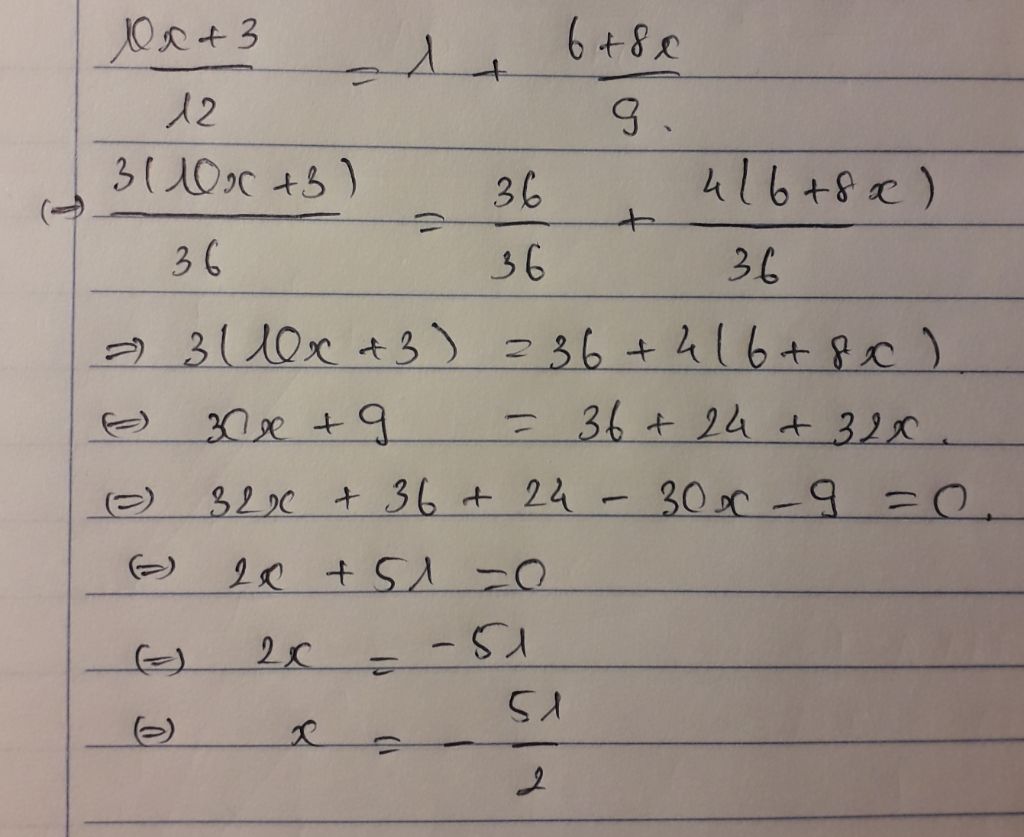 10x + 3 / 12 = 1 + 6 + 8x / 9.
(=) 3(10x + 3) / 36 = 36 / 36 + 4(6 + 8x) / 36
=> 3(10x + 3) = 36 + 4(6 + 8x)
(=) 30x + 9 = 36 + 24 + 32x.
(=) 32x + 36 + 24 - 30x - 9 = 0.
(=) 2x + 51 = 0
(=) 2x = - 51
(=) x = - 51 / 2